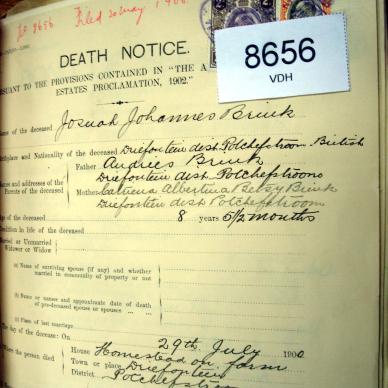 No 8656 Filed 20 May, 190
8656
VDH
DEATH NOTICE.
PURSUANT TO THE PROVISIONS CONTAINED IN "THE A
ESTATES PROCLAMATION, 1902."
Name of the deceased Josuah Johannes Brink
Birthplace and Nationality of the deceased Driefontein dist. Potchefstroom British
Father Andries Brink
Names and addresses of the Driefontein dist. Potchefstroom
Parents of the deceased Mother Catriena Albertina Betsy Brink
Driefontein dist Potchefstroom
Age of the deceased 8 years 5½ months
Condition in life of the deceased
Married or Unmarried
Widower or Widow
(a) Name of surviving spouse (if any) and whether
married in community of property or not
(b) Name or names and approximate date of death
of pre-deceased spouse or spouses
(c) Place of last marriage
The day of the decease: On 29th July 190
Where the person died House Homestead on farm
Town or place Driefontein
District Potchefstroom